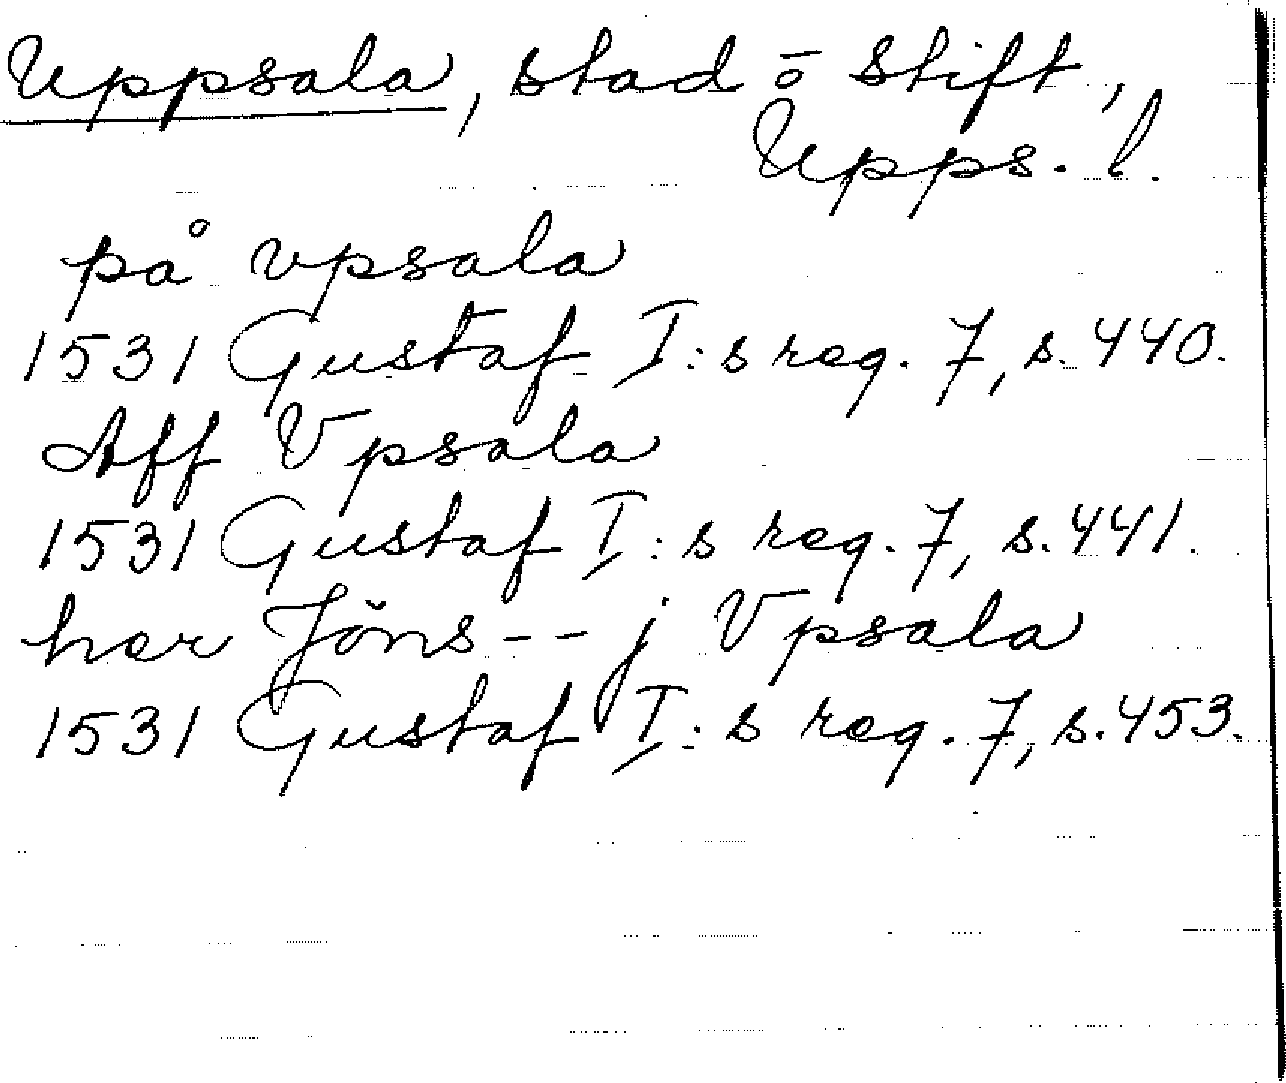 Uppsala, stad ō stift,
Upps. l.
på vpsala
1531 Gustaf I:s reg. 7, s. 440.
Aff Vpsala
1531 Gustaf I:s reg. 7, s. 441.
her Jöns -- j Vpsala
1531 Gustaf I:s reg. 7, s. 453.